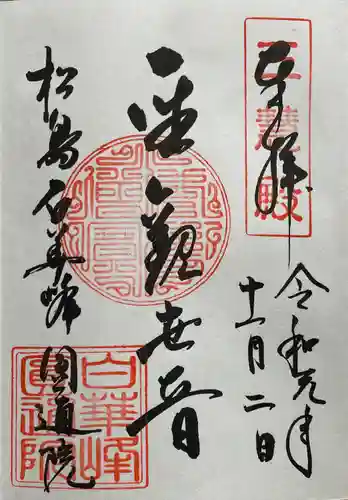 奉拝
三慧殿
令和元年
十一月二日
聖観世音
松島白華峰圓通院
白華峰
圓通院